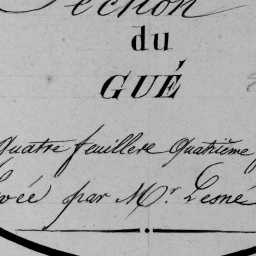 Section
du
GUÉ
Quatre feuillere Quatrième
vée par Mr. Lesné